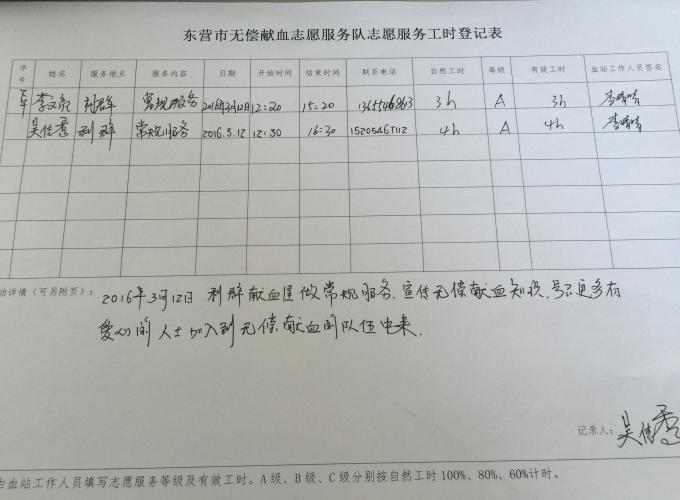 东营市无偿献血志愿服务队志愿服务工时登记表
序号 姓名 服务地点 服务内容 日期 开始时间 结束时间 联系电话 自然工时 等级 有效工时 血站工作人员签名
利群 常规服务 12:20 15:20 3h A 3h
吴佳秀 利群 常规服务 2016.3.12 12:30 16:30 4h A 4h
动详情（可另附页）：
2016年3月12日 利群献血屋做常规服务.宣传无偿献血知识,号召更多有
爱心的人士加入到无偿献血的队伍中来.
记录人：吴佳秀
由血站工作人员填写志愿服务等级及有效工时。A级、B级、C级分别按自然工时100%、80%、60%计时。